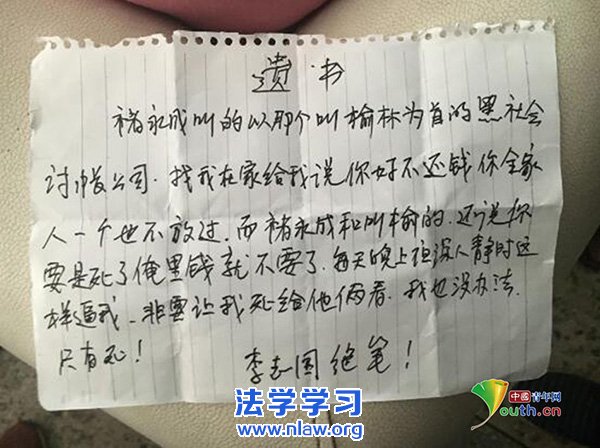 遗书
褚永成叫的以那个叫榆林为首的黑社会
讨帐公司.找我在家给我说你好不还钱你全家
人一个也不放过.而褚永成和叫榆的.还说你
要是死了俺里钱就不要了.每天晚上夜深人静时这
样逼我.非要让我死给他俩看.我也没办法.
只有死!
李志国绝笔!
法学学习
www.nlaw.org
中國青年网
Youth.cn